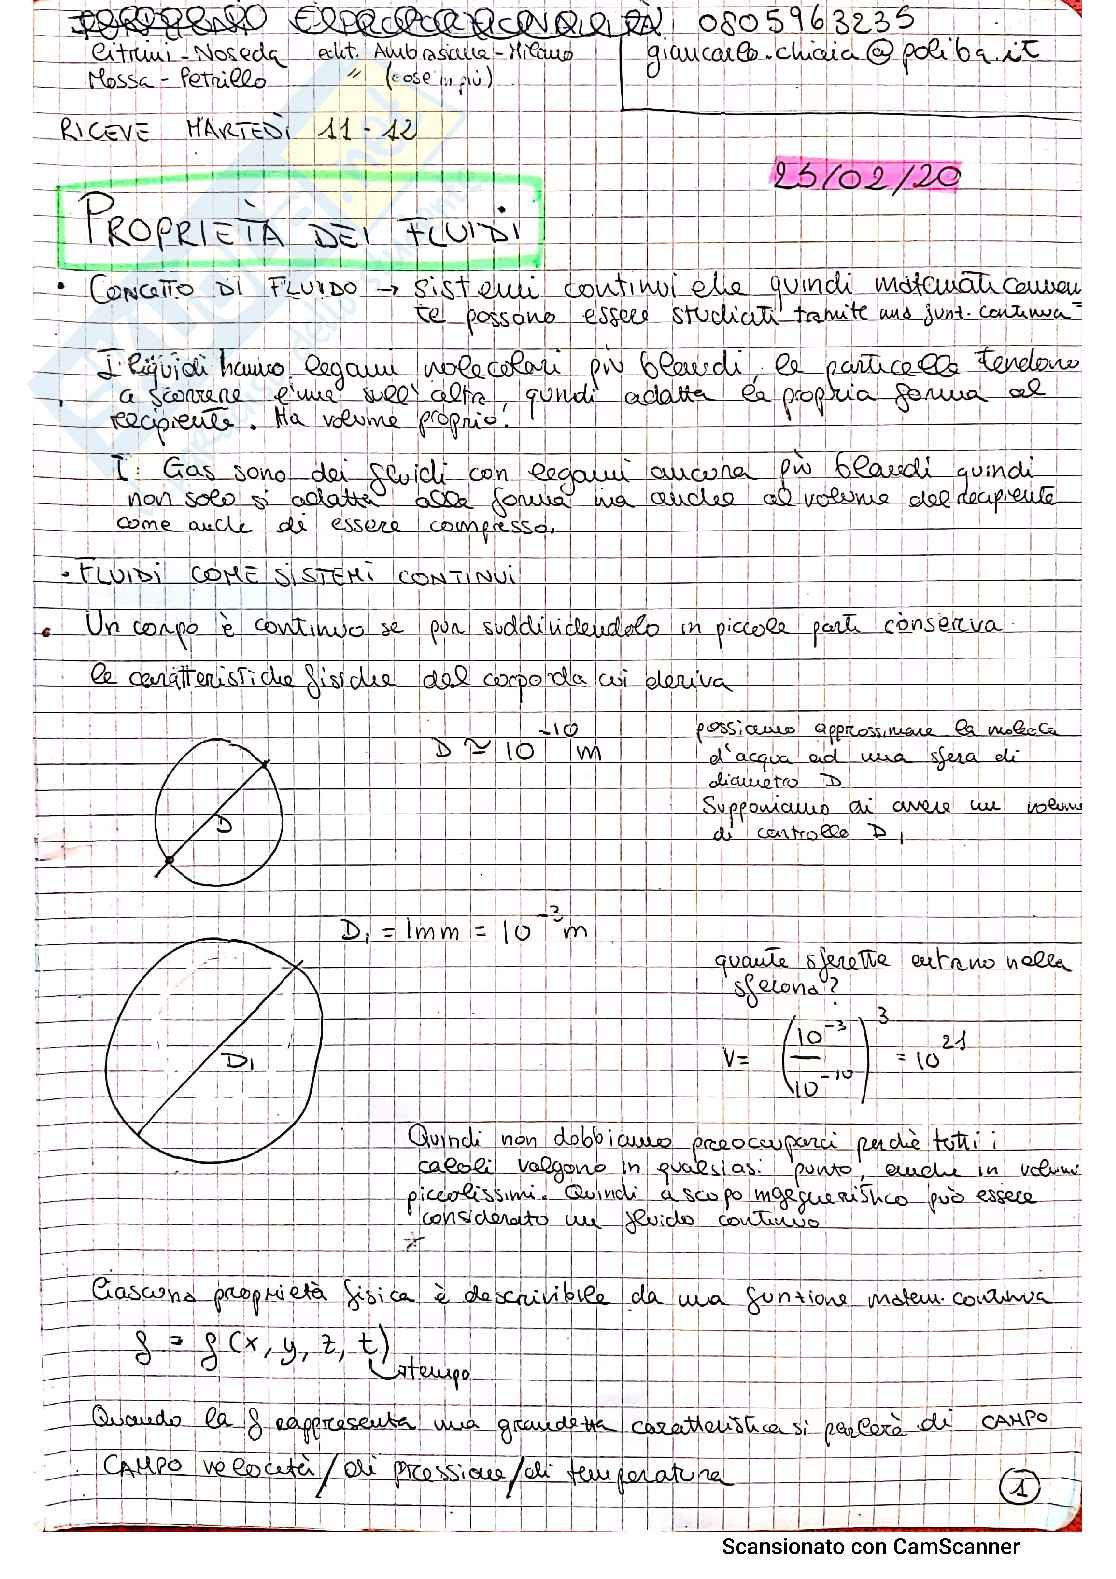 0805963235
Citrini-Noseda edit. Ambrosiana-Milano
Mossa-Petrillo " (cose in più)
giancarlo.chiaia@poliba.it
RICEVE MARTEDÌ 11-12
25/02/20
PROPRIETÀ DEI FLUIDI
• CONCETTO DI FLUIDO → sistemi continui che quindi matematicamen
te possono essere studiati tramite una funt. continua
I liquidi hanno legami molecolari più blandi, le particelle tendono
a scorrere l'una sull'altra, quindi adatta la propria forma al
recipiente. Ha volume proprio.
I Gas sono dei fluidi con legami ancora più blandi quindi
non solo si adatta alla forma ma anche al volume del recipiente
come anche di essere compresso.
• FLUIDI COME SISTEMI CONTINUI
• Un corpo è continuo se pur suddividendolo in piccole parti conserva
le caratteristiche fisiche del corpo da cui deriva
D ≃ 10^-10 m
possiamo approssimare la moleca
d'acqua ad una sfera di
diametro D
Supponiamo di avere un volume
di controllo D1
D
D1 = 1mm = 10^-3 m
quante sferette entrano nella
sferona?
V= (10^-3/10^-10)^3 = 10^21
D1
Quindi non dobbiamo preoccuparci perchè tutti i
calcoli valgono in qualsiasi punto, anche in volumi
piccolissimi. Quindi a scopo ingegneristico può essere
considerato un fluido continuo
Ciascuna proprietà fisica è descrivibile da una funzione matem. continua
f = f(x, y, z, t)
→ tempo
Quando la f rappresenta una grandezza caratteristica si parlerà di CAMPO
CAMPO velocità/di pressione/di temperatura
1
Scansionato con CamScanner